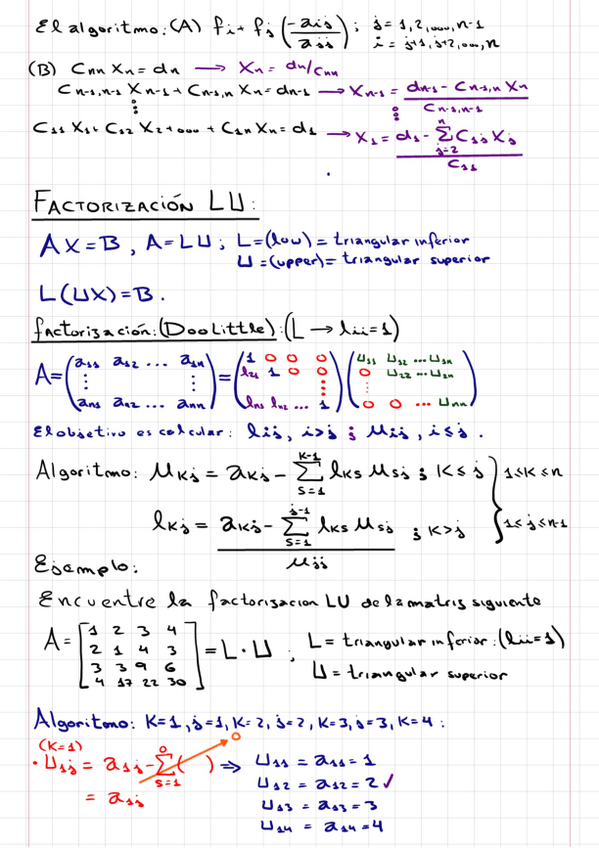 El algoritmo: (A) fi + fj (-aij/ajj) ; j = 1,2,...,n-1
i = j+1, j+2,..., n
(B) Cnn Xn = dn → Xn = dn/Cnn
Cn-1,n-1 Xn-1 + Cn-1,n Xn = dn-1 → Xn-1 = (dn-1 - Cn-1,n Xn) / Cn-1,n-1
⋮ ⋮
C11 X1 + C12 X2 + ... + C1n Xn = d1 → X1 = (d1 - Σ_{j=2}^{n} C1j Xj) / C11
FACTORIZACIÓN LU:
AX = B , A = LU ; L = (low) = triangular inferior
U = (upper) = triangular superior
L(UX) = B.
factorización: (DooLittle): (L → lii = 1)
A = (a11 a12 ... a1n) = (1 0 0 0) (U11 U12 ... U1n)
(⋮ ⋮) (l21 1 0 0) (0 U22 ... U2n)
(⋮) (⋮)
(an1 an2 ... ann) (ln1 ln2 ... 1) (0 0 ... Unn)
El objetivo es calcular: lij, i>j ; Uij, i≤j.
Algoritmo: Ukj = akj - Σ_{s=1}^{k-1} lks Usj ; k≤j } 1≤k≤n
lkj = (akj - Σ_{s=1}^{j-1} lks Usj) / Ujj ; k>j } 1≤j≤n-1
Ejemplo:
Encuentre la factorización LU de la matriz siguiente
A = [1 2 3 4] = L · U ; L = triangular inferior: (lii = 1)
[2 1 4 3] U = triangular superior
[3 3 9 6]
[4 17 22 30]
Algoritmo: K=1, j=1, K=2, j=2, K=3, j=3, K=4:
(K=1)
· U1j = a1j - Σ_{s=1}^{0} ( ) → 0 ⇒ U11 = a11 = 1
= a1j U12 = a12 = 2 ✓
U13 = a13 = 3
U14 = a14 = 4